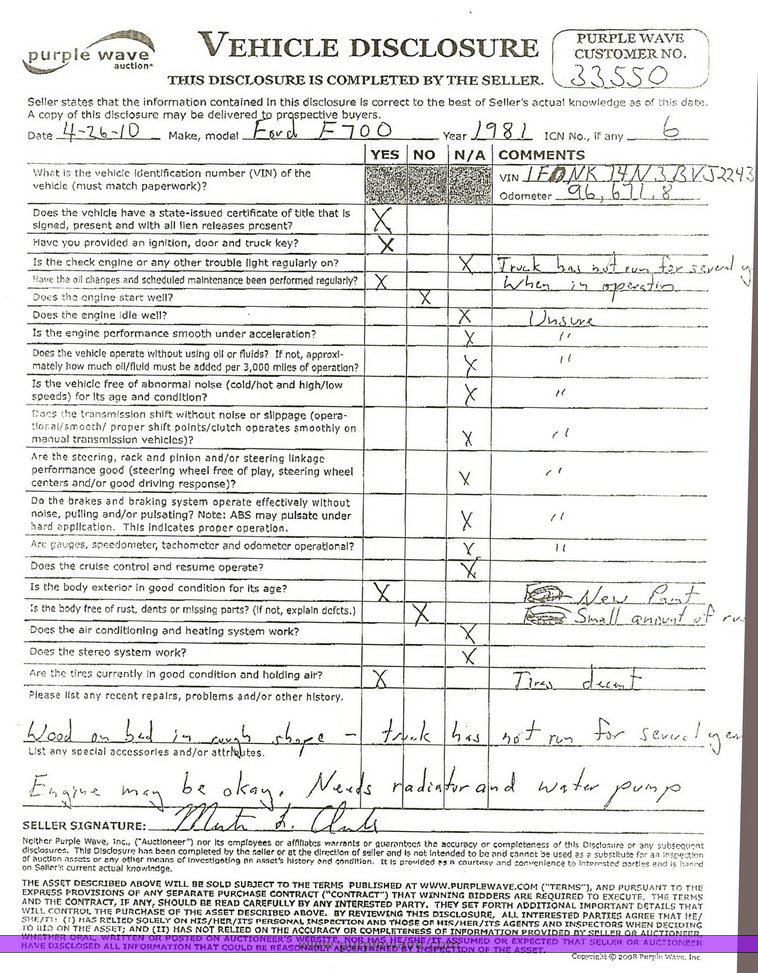 purple wave
auction®
VEHICLE DISCLOSURE
THIS DISCLOSURE IS COMPLETED BY THE SELLER.
PURPLE WAVE
CUSTOMER NO.
33550
Seller states that the information contained in this disclosure is correct to the best of Seller's actual knowledge as of this date.
A copy of this disclosure may be delivered to prospective buyers.
Date 4-26-10 Make, model Ford F700 Year 1981 ICN No., if any 6
YES NO N/A COMMENTS
What is the vehicle identification number (VIN) of the
vehicle (must match paperwork)?
VIN 1FDNK74N3BVJ2243
Odometer 96,671.8
Does the vehicle have a state-issued certificate of title that is
signed, present and with all lien releases present? X
Have you provided an ignition, door and truck key? X
Is the check engine or any other trouble light regularly on? X Truck has not run for several y
Have the oil changes and scheduled maintenance been performed regularly? X When in operation
Does the engine start well? X
Does the engine idle well? X Unsure
Is the engine performance smooth under acceleration? X "
Does the vehicle operate without using oil or fluids? If not, approxi-
mately how much oil/fluid must be added per 3,000 miles of operation? X "
Is the vehicle free of abnormal noise (cold/hot and high/low
speeds) for its age and condition? X "
Does the transmission shift without noise or slippage (opera-
tional/smooth/ proper shift points/clutch operates smoothly on
manual transmission vehicles)? X "
Are the steering, rack and pinion and/or steering linkage
performance good (steering wheel free of play, steering wheel
centers and/or good driving response)? X "
Do the brakes and braking system operate effectively without
noise, pulling and/or pulsating? Note: ABS may pulsate under
hard application. This indicates proper operation. X "
Are gauges, speedometer, tachometer and odometer operational? X "
Does the cruise control and resume operate? X
Is the body exterior in good condition for its age? X New Paint
Is the body free of rust, dents or missing parts? (If not, explain defcts.) X Small amount of ru
Does the air conditioning and heating system work? X
Does the stereo system work? X
Are the tires currently in good condition and holding air? X Tires decent
Please list any recent repairs, problems and/or other history.
Wood on bed in rough shape - truck has not run for several year
List any special accessories and/or attributes.
Engine may be okay. Needs radiator and water pump
SELLER SIGNATURE:
Neither Purple Wave, Inc., ("Auctioneer") nor its employees or affiliates warrants or guarantees the accuracy or completeness of this Disclosure or any subsequent
disclosures. This Disclosure has been completed by the seller or at the direction of seller and is not intended to be and cannot be used as a substitute for an inspection
of auction assets or any other means of investigating an asset's history and condition. It is provided as a courtesy and convenience to interested parties and is based
on Seller's current actual knowledge.
THE ASSET DESCRIBED ABOVE WILL BE SOLD SUBJECT TO THE TERMS PUBLISHED AT WWW.PURPLEWAVE.COM ("TERMS"), AND PURSUANT TO THE
EXPRESS PROVISIONS OF ANY SEPARATE PURCHASE CONTRACT ("CONTRACT") THAT WINNING BIDDERS ARE REQUIRED TO EXECUTE. THE TERMS
AND THE CONTRACT, IF ANY, SHOULD BE READ CAREFULLY BY ANY INTERESTED PARTY. THEY SET FORTH ADDITIONAL IMPORTANT DETAILS THAT
WILL CONTROL THE PURCHASE OF THE ASSET DESCRIBED ABOVE. BY REVIEWING THIS DISCLOSURE, ALL INTERESTED PARTIES AGREE THAT HE/
SHE/IT: (I) HAS RELIED SOLELY ON HIS/HER/ITS PERSONAL INSPECTION AND THOSE OF HIS/HER/ITS AGENTS AND INSPECTORS WHEN DECIDING
TO BID ON THE ASSET; AND (II) HAS NOT RELIED ON THE ACCURACY OR COMPLETENESS OF INFORMATION PROVIDED BY SELLER OR AUCTIONEER,
WHETHER ORAL, WRITTEN OR POSTED ON AUCTIONEER'S WEBSITE, NOR HAS HE/SHE/IT ASSUMED OR EXPECTED THAT SELLER OR AUCTIONEER
HAVE DISCLOSED ALL INFORMATION THAT COULD BE REASONABLY ASCERTAINED BY INSPECTION OF THE ASSET.
Copyright © 2008 Purple Wave, Inc.